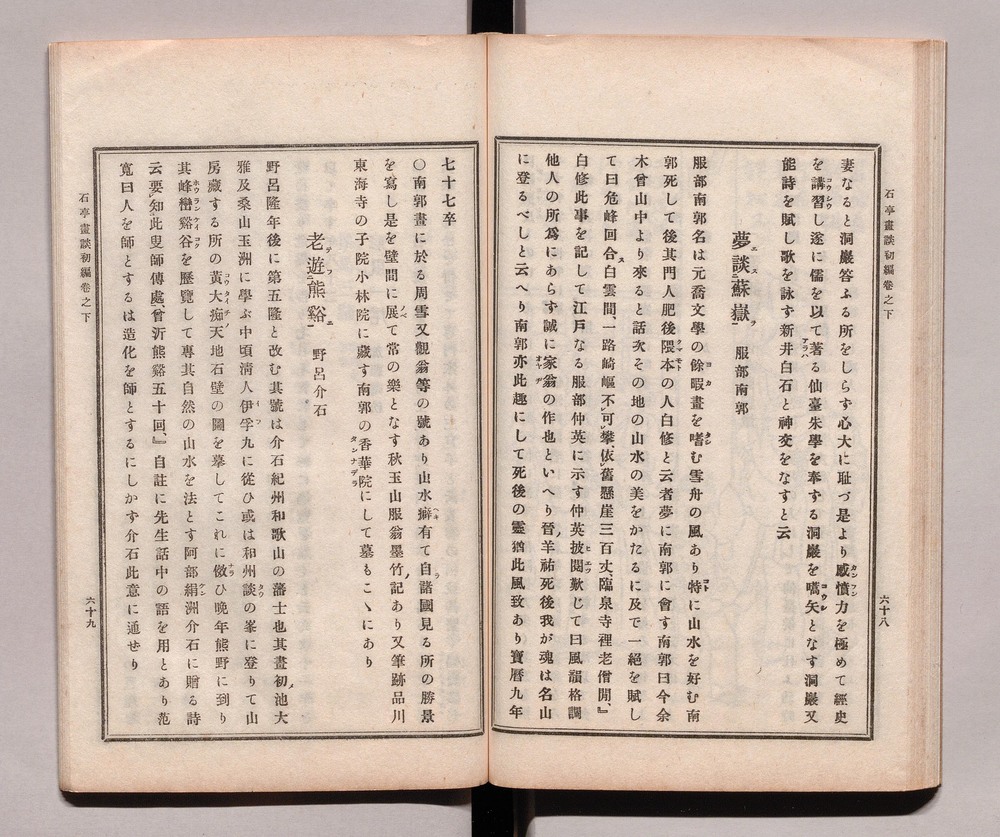 石亭畫談初編卷之下
六十八
妻なると洞巖答ふる所をしらず心大に耻づ是より感憤力を極めて經史
を講習し遂に儒を以て著る仙臺朱學を奉ずる洞巖を嚆矢となす洞巖又
能詩を賦し歌を詠ず新井白石と神交をなすと云
夢談蘇嶽 服部南郭
服部南郭名は元喬文學の餘暇畫を嗜む雪舟の風あり特に山水を好む南
郭死して後其門人肥後隈本の人白修と云者夢に南郭に會す南郭曰今余
木曾山中より來ると話次その地の山水の美をかたるに及で一絕を賦し
て曰危峰回合白雲間、一路崎嶇不可攀、依舊懸崖三百丈、臨泉寺裡老僧閒、』
白修此事を記して江戸なる服部仲英に示す仲英披閱歎じて曰風韻格調
他人の所爲にあらず誠に家翁の作也といへり晉羊祐死後我が魂は名山
に登るべしと云へり南郭亦此趣にして死後の靈猶此風致あり寶曆九年
七十七卒
〇南郭畫に於る周雪又觀翁等の號あり山水癖有て自諸國見る所の勝景
を寫し是を壁間に展て常の樂となす秋玉山服翁墨竹記あり又筆跡品川
東海寺の子院小林院に藏す南郭の香華院にして墓もこゝにあり
老遊熊谿 野呂介石
野呂隆年後に第五隆と改む其號は介石紀州和歌山の藩士也其畫初池大
雅及桑山玉洲に學ぶ中頃淸人伊孚九に從ひ或は和州談の峯に登りて山
房藏する所の黃大痴天地石壁の圖を摹してこれに傚ひ晚年熊野に到り
其峰巒谿谷を歷覽して專其自然の山水を法とす阿部絹洲介石に贈る詩
云要知此叟師傳處、曾泝熊谿五十回、』自註に先生話中の語を用とあり范
寬曰人を師とするは造化を師とするにしかず介石此意に通せり
石亭畫談初編卷之下
六十九